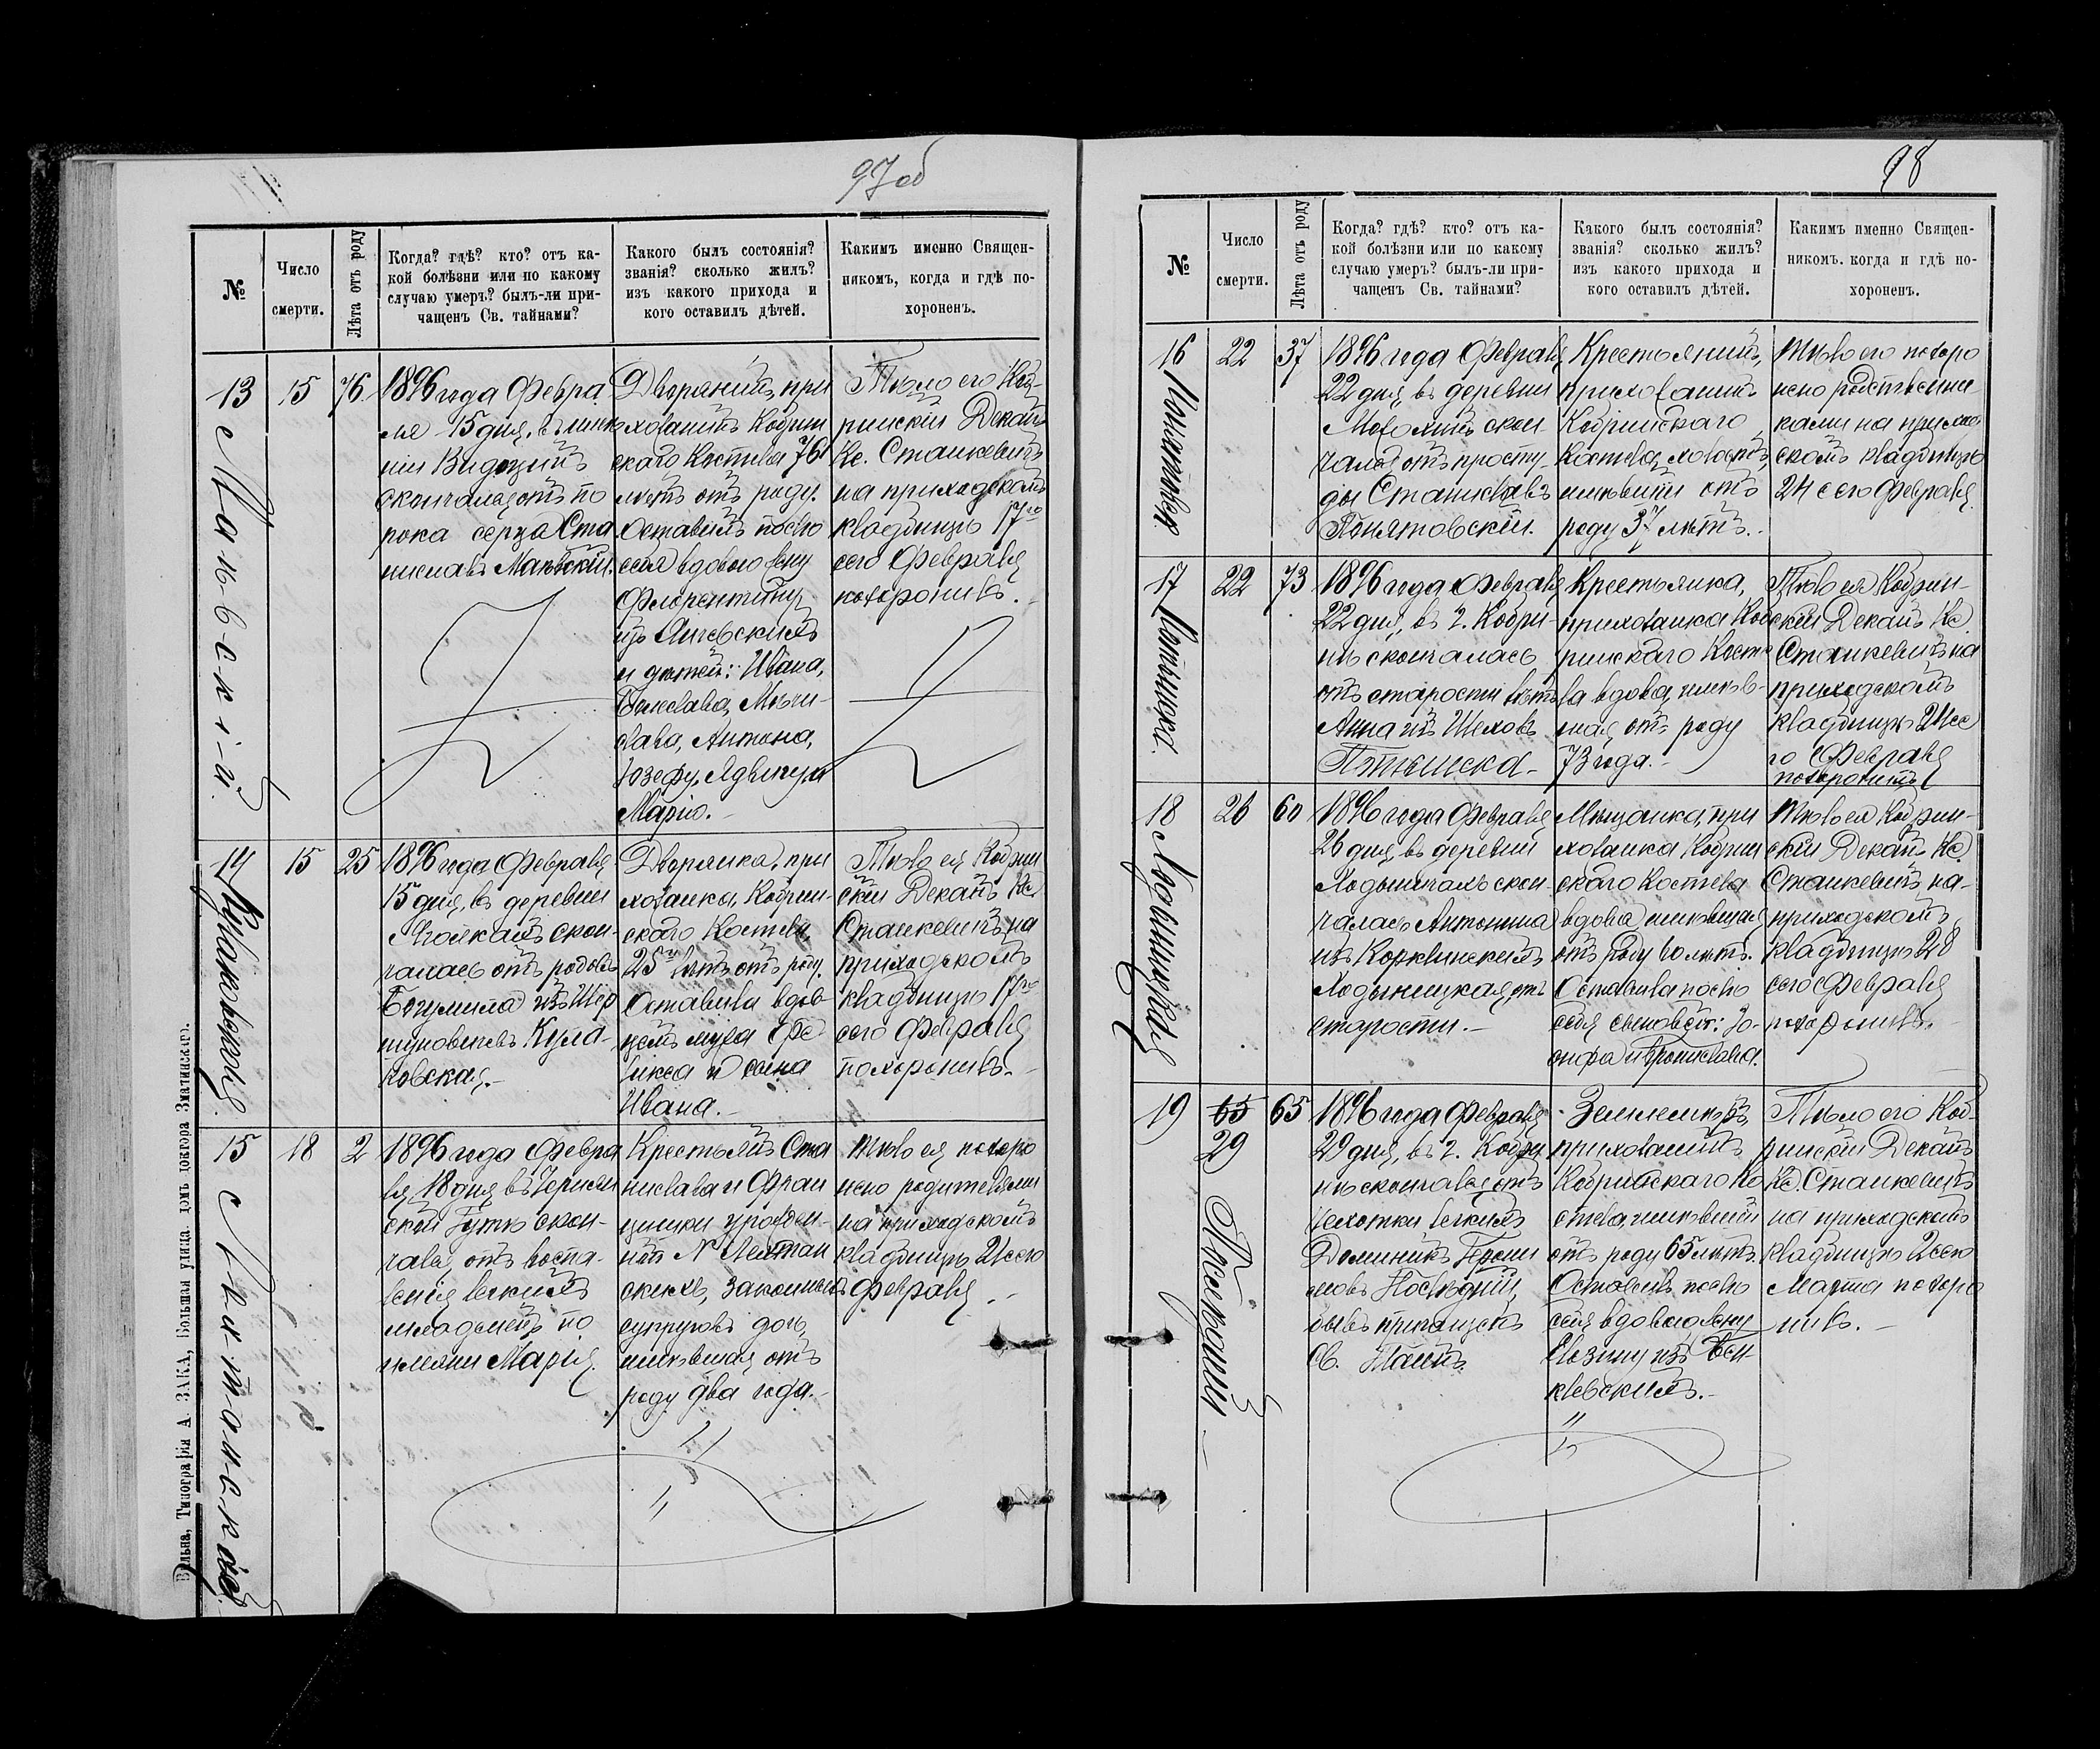 97 об
№
Число
смерти.
Лѣта отъ роду
Когда? гдѣ? кто? отъ ка-
кой болѣзни или по какому
случаю умеръ? былъ-ли при-
чащенъ Св. тайнами?
Какого былъ состоянія?
званія? сколько жилъ?
изъ какого прихода и
кого оставилъ дѣтей.
Каким​ъ именно Священ-
никомъ, когда и гдѣ по-
хороненъ.
13
15
76
1896 года Февра
ля 15 дня, въ имѣ
ніи
скончался отъ по
рока серца Ста
ниславъ Маньвскій.
Дворянинъ, при
хожанинъ Кобрин
скаго Костела 76
лѣтъ отъ роду.
Оставилъ послѣ
себя вдовою жену
Флорентину
изъ
и дѣтей: Ивана,
Болеслава, Мѣчи-
слава, Антона,
Юзефу, Ядвигу и
Марію.
Тѣло его Коб-
ринскій Деканъ
Кс. Станкевичъ
на приходскомъ
кладбищѣ 17го
сего Февраля
похоронилъ.
14
Кулаковская
15
25
1896 года Февраля
15 дня, въ деревни
скон-
чалась отъ родовъ
Богумила изъ
Кула-
ковская.
Дворянка, при
хожанка Кобрин-
скаго Костела,
25ти лѣтъ отъ роду.
Оставила вдов-
цемъ мужа Фе
ликса и сына
Ивана.
Тѣло ея Кобрин
скій Деканъ Кс
Станкевичъ на
приходскомъ
кладбищѣ 17го
сего Февраля
похоронилъ.
15
18
2
1896 года Февра
ля 18 дня въ
ской Гутѣ скон-
чалась отъ воспа-
ленія легкихъ
младенецъ по
имени Марія.
Крестьянъ Ста
нислава и Фран
цишки урожден-
ной N
скихъ, законныхъ
супруговъ дочь,
имѣвшая отъ
роду два года.
Тѣло ея похоро
нено родителями
на приходскомъ
кладбищѣ 21 сего
Февраля.
Вильна, Типографія А. ЗАКА, Большая улица, домъ доктора Зматинскаго.
98
№
Число
смерти.
Лѣта отъ роду
Когда? гдѣ? кто? отъ ка-
кой болѣзни или по какому
случаю умеръ? былъ-ли при-
чащенъ Св. тайнами?
Какого былъ состоянія?
званія? сколько жилъ?
изъ какого прихода и
кого оставилъ дѣтей.
Какимъ именно Священ-
никомъ, когда и гдѣ по-
хороненъ.
16
22
37
1896 года Февраля
22 дня, въ деревни
скон-
чался отъ просту-
ды Станиславъ
Понятовскій.
Крестьянинъ,
прихожанинъ
Кобринскаго
Костела, холостъ,
имѣвшій отъ
роду 37 лѣтъ.
Тѣло его похоро
нено родственни-
ками на приход-
скомъ кладбищѣ
24 сего Февраля.
17
22
73
1896 года Февраля
22 дня, въ г. Кобри-
нѣ скончалась
отъ старости лѣтъ
Анна изъ
Крестьянка,
прихожанка Коб
ринскаго Косте
ла вдова, имѣв-
шая отъ роду
73 года.
Тѣло ея Кобрин-
скій Деканъ Кс
Станкевичъ на
приходскомъ
кладбищѣ 24 се
го Февраля
похоронилъ
18
26
60
1896 года Февраля
26 дня, въ деревни
скон-
чалась Антонина
изъ
Ходыницкая, отъ
старости.
Мѣщанка, при
хожанка Кобрин
скаго Костела
вдова имѣвшая
отъ роду 60 лѣтъ.
Оставила послѣ
себя сыновей: Іо-
сифа и Бронислава.
Тѣло ея Кобрин-
скій Деканъ Кс.
Станкевичъ на-
приходскомъ
кладбищѣ 28
сего Февраля
похоронилъ.
19
65
29
65
1896 года Февраля
29 дня, въ г. Кобри
нѣ скончался отъ
чахотки легкихъ
Доминикъ
бывъ причащенъ
Св. Таинъ.
Землемѣръ,
прихожанинъ
Кобринскаго Ко
стела имѣвшій
отъ роду 65 лѣтъ.
Оставилъ послѣ
себя вдовою жену
изъ
Тѣло его Коб-
ринскій Деканъ
Кс. Станкевичъ
на приходскомъ
кладбищѣ 2 сего
Марта похоро
нилъ.